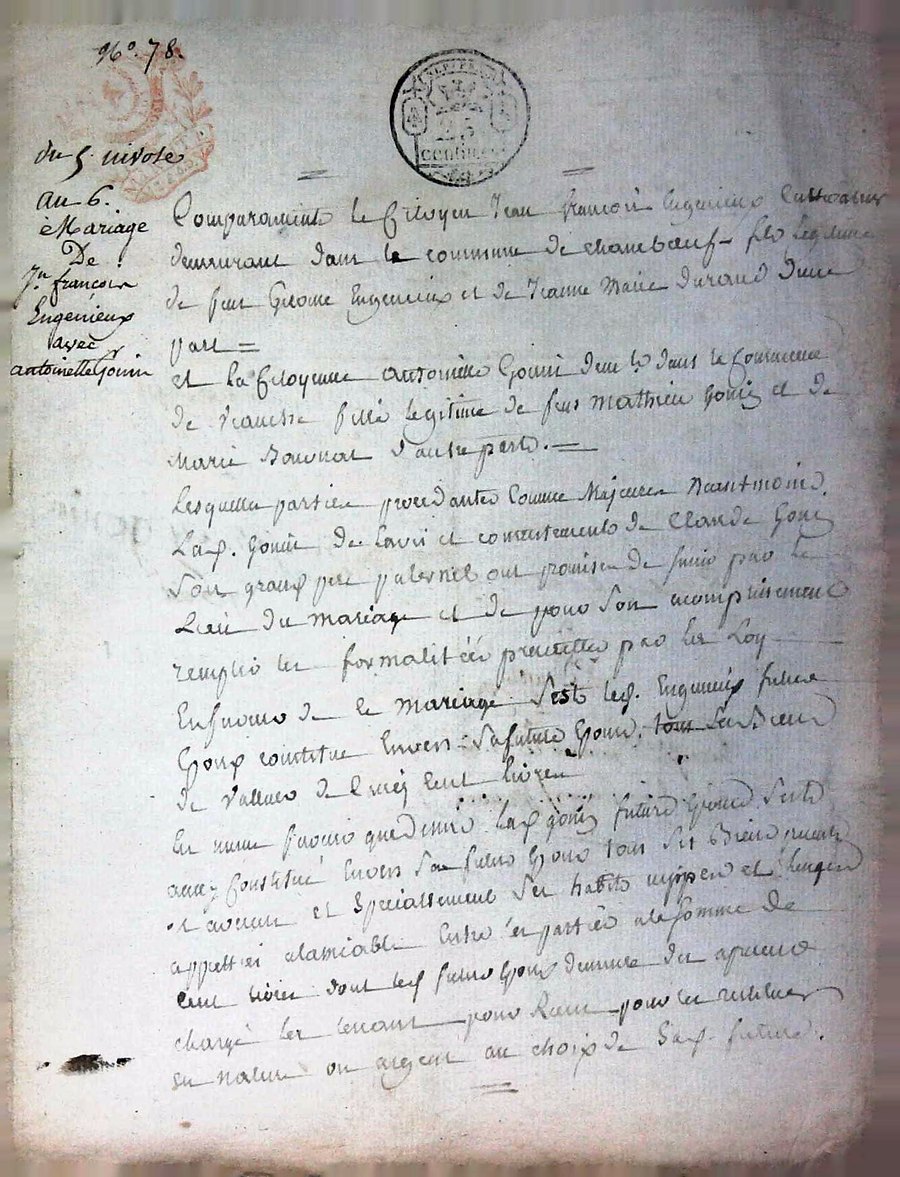 N°. 78.
du 5. nivose
an 6.
Mariage
De
Jn. françois
Engenieux
avec
antoinette Gonin
25
centimes
Comparament le Citoyen Jean françois Engenieux Cultivateur
demeurant dans la commune de chambœuf fils legitime
de feu Engenieux et de Jeanne Marie Durand d'une
part
et la Citoyenne antoinette Gonin dans la Commune
de fille legitime de feus mathieu Gonin et de
Marie d'autre part.
Lesquelles parties procedantes Comme Majeures
Gonin de l'avis et consentement de Claude Gonin
Son grand pere paternel ont promis de S'unir par le
Lien du mariage et de pour son acomplissement
remplir les formalitées par les Loy
En faveur de ce mariage S'est led. Engenieux futur
Epoux constitué Envers Sa future Epouse tous Ses Biens
de Valleur de Cent livres
En meme faveur que dessus lad. gonin future Epouse S'est
aussy Constitué Envers Son futur Epoux tous Ses Biens presents
et avenir et Speciallement Ses habits nippes et linges
alamiable Entre les parties a la Somme de
Cent livres dont led. futur Epoux demeure des apresent
chargé les tenant pour Reçu pour les restituer
en nature ou argent au choix de Sad. future.